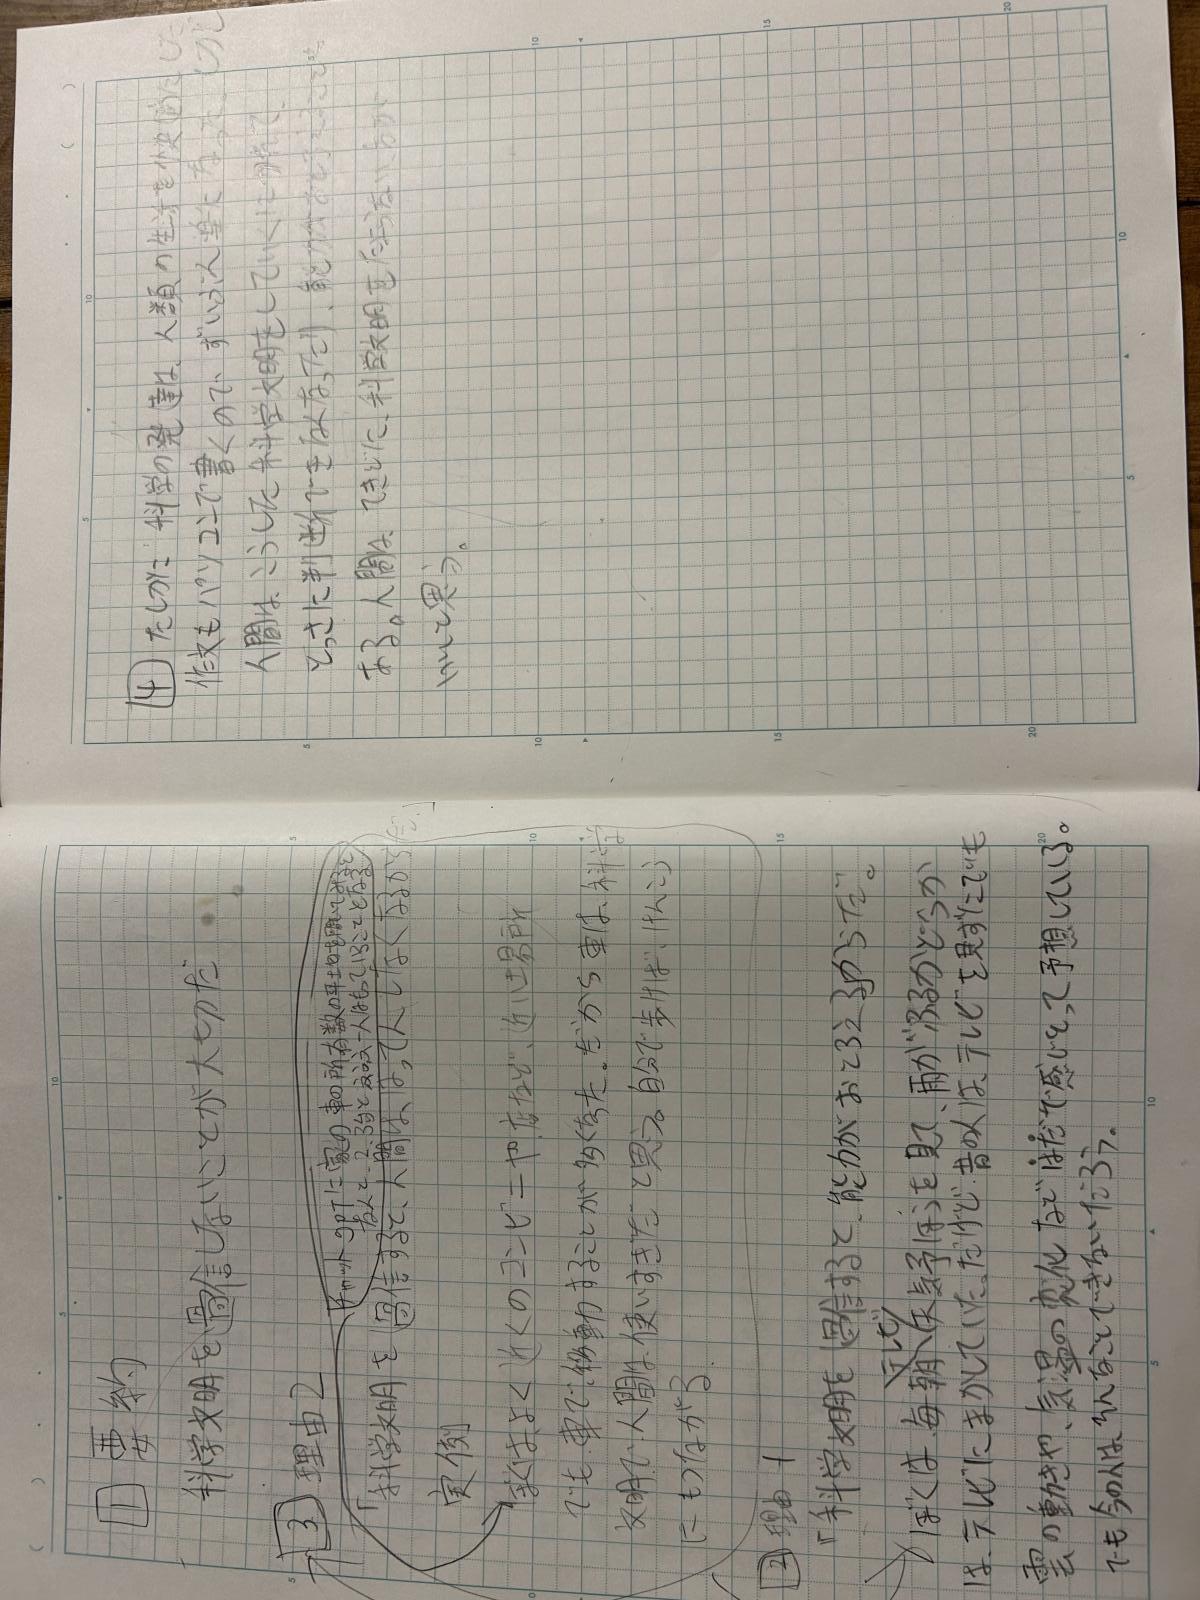 1 要約
科学文明を過信しないことが大切だ
3 理由2
チャットGPTに家の車の所有数の平均を聞いてみると
なんと、2、3台と
「科学文明を過信すると、人間は、
実例
教はよく近くのコンビニや、など、近い場所
でも、車で、移動することが多くなった。だから車は、科学
文明で、人間は、使いすぎだと思う。自分で歩けば、けんこう
にもつながる
2 理由1
「科学文明を過信すると、能力がおとろえるからだ。
テレビ
ぼくは毎朝天気予ほうを見て、雨がふるかどうか
は、テレビにまかしていた。だけど昔の人は、テレビを見ずにでも
雲の動きや、気温の変化などはだで感じとって予想している。
でも今の人は、そんなことできないだろう。
4 たしかに、科学の発達は、人類の生活を快適にした
作文もパソコンで書くので、ずいぶん楽になった。しかし
人間は、こうした科学文明をしていくにつれて、
とっさに判断できなくなったり、能力がおとろえること
ある。人間は、てきどに、科学文明をたよらないほうが
いいと思う。